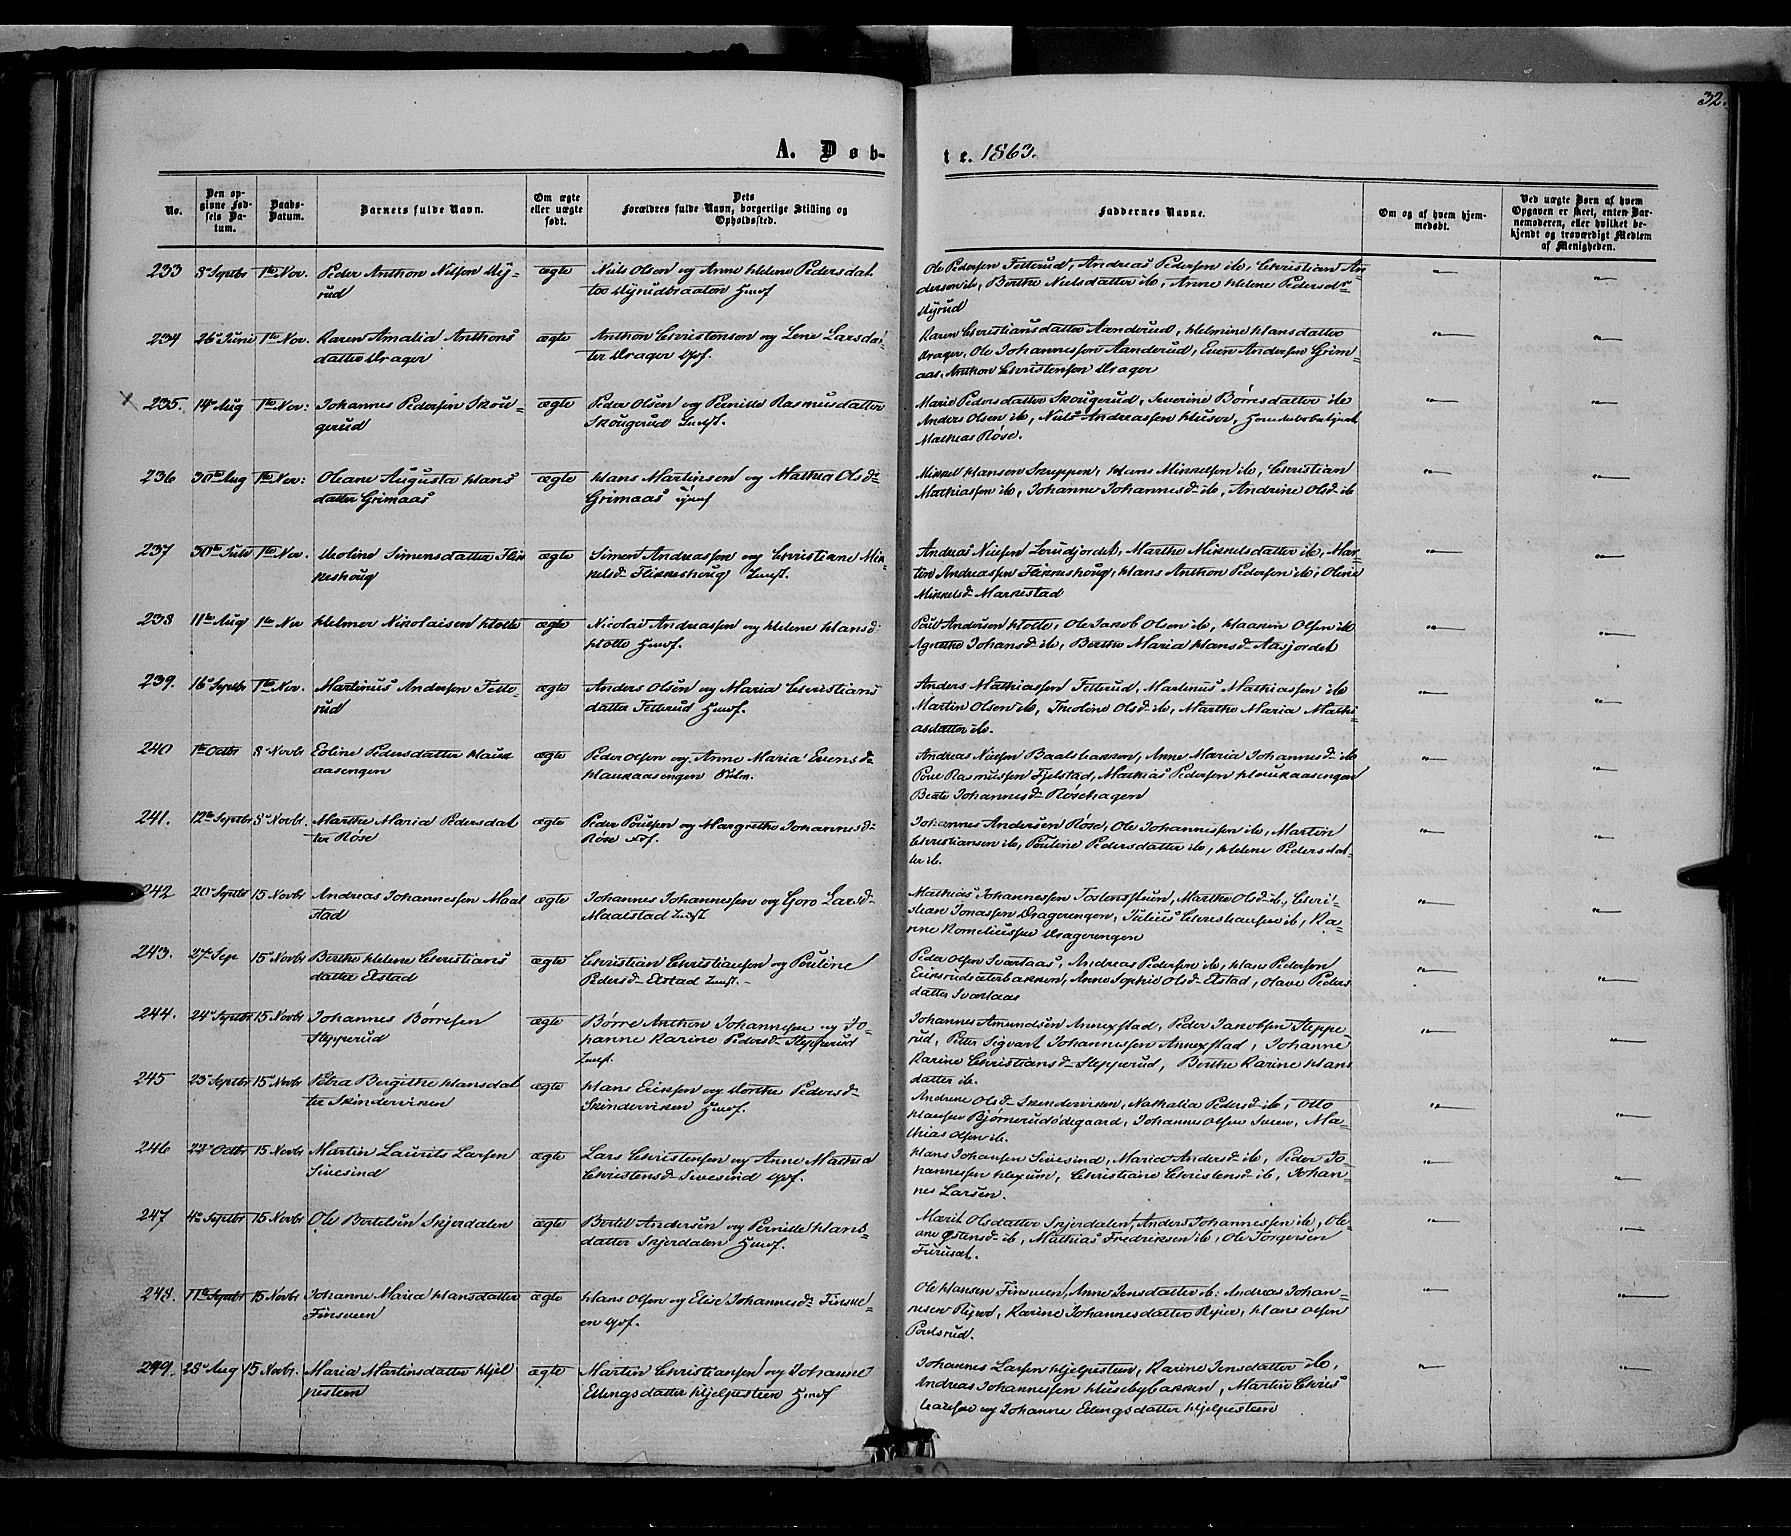 32.
A. Døb-
te. 1863.
No.
Den op-
givne Fød-
sels Da-
tum.
Daabs-
Datum.
Barnets fulde Navn.
Om ægte
eller uægte
født.
Dets
Forældres fulde Navn, borgerlige Stilling og
Opholdssted.
Faddernes Navne.
Om og af hvem hjem-
medøbt.
Ved uægte Børn af hvem
Opgaven er skeet, enten Bar-
nemoderen, eller hvilket be-
kjendt og troværdigt Medlem
af Menigheden.
233 8 Septbr 1ste Nov. Peder Anthon Nilsen Dy-
rud
ægte
Niels Olsen og Anne Helene Pedersdat
ter Dyrudbraaten Husf
Ole Pedersen Fetterud, Andreas Pedersen ib, Christian An-
dersen ib, Berthe Nielsdatter ib, Anne Helene Pedersdr
Dyrud
234 26 Juni 1ste Nov. Karen Amalia Anthons
datter Drager
ægte
Anthon Christensen og Lene Larsdat-
ter Drager Gbf.
Karen Christiansdatter Aanderud, Helmine Hansdatter
Drager, Ole Johannessen Aanderud, Even Andersen Grim-
aas, Anthon Christensen Drager
235. 14 Aug 1ste Nov: Johannes Pedersen Skou-
gerud
ægte
Peder Olsen og Pernille Rasmusdatter
Skougerud Indst.
Marie Pedersdatter Skougerud, Severine Børresdatter ib
Anders Olsen ib, Niels Andreassen Huser,
Mathias Røse.
236 30te Aug 1ste Nov: Oleane Augusta Hans
datter Grimaas
ægte
Hans Martinsen og Mathea Olsd-
Grimaas
Mikkel Hansen Skreppen, Hans Mikkelsen ib, Christian
Mathiassen ib, Johanne Johannesd- ib, Andrine Olsd- ib
237 30te Juli 1ste Nov. Nicoline Simensdatter Flik
keshoug
ægte
Simen Andreassen og Christiane Mik-
kelsd- Flikkeshoug Indst.
Andreas Nielsen Lerudjordet, Marthe Mikkelsdatter ib, Mar-
ten Andreassen Flikkeshoug, Hans Anthon Pedersen ib, Oline
Mikkelsd- Markestad
238 11te Aug 1ste Nov Helmer Nikolaisen Holte
ægte
Nicolai Andreassen og Helene Hansd-
Holte Husf.
Poul Andersen Holte, Ole Jakob Olsen ib, Haaken Olsen ib
Agnethe Johansd- ib, Berthe Maria Hansd- Aasjordet
239. 16 Septbr 1ste Nov. Martinus Andersen Fette-
rud
ægte
Anders Olsen og Maria Christians
datter Fetterud Husf.
Anders Mathiassen Fetterud, Martinus Mathiassen ib
Martin Olsen ib, Theoline Olsd- ib, Marthe Maria Mathi-
asdatter ib.
240 1ste Octbr 8 Novbr Eoline Pedersdatter Hauk
aasengen
ægte
Peder Olsen og Anne Maria Evensd-
Haukaasengen
Andreas Nielsen Baalsbakken, Anne Maria Johannesd- ib
Poul Rasmussen Fjelstad, Mathias Pedersen Houkaasengen
Beate Johannesd- Røsehagen
241. 12te Septbr 8 Novbr. Marthe Maria Pedersdat
ter Røse
ægte
Peder Poulsen og Margrethe Johannesd-
Røse
Johannes Andersen Røse, Ole Johannessen ib, Martin
Christiansen ib, Pouline Pedersdatter ib, Helene Pedersdat-
ter ib.
242 20 Septbr 15 Novbr Andreas Johannessen Maal
stad
ægte
Johannes Johannessen og Goro Larsd-
Maalstad Indst
Mathias Johannessen Tostensstuen, Marthe Olsd- ib, Chri-
stian Jonassen Dragerengen, Julius Christiansen ib, Ka-
rine Korneliussen Dragerengen
243. 27 Sep 15 Novbr Berthe Helene Christians
datter Elstad
ægte
Christian Christiansen og Pouline
Pedersd- Elstad Indst.
Peder Olsen Svartaas, Andreas Pedersen ib, Hans Pedersen
Eriksrudsæterbakken, Anne Sophie Olsd- Elstad, Olave Peders
datter Svartaas
244. 24 Septbr 15 Novbr Johannes Børresen
Stepperud
ægte
Børre Anthon Johannesen og Jo-
hanne Karine Pedersd- Stepperud
Indst.
Johannes Amundsen Annexstad, Peder Jakobsen Steppe
rud, Petter Sigvart Johannessen Annexstad, Johanne
Karine Christiansd- Stepperud, Berthe Karine Hans
datter ib.
245 23 Septbr 15 Novbr Petra Bergithe Hansdat
ter Skinderviken
ægte
Hans Eriksen og Dorthe Pedersd-
Skinderviken Husf.
Andrine Olsd- Skinderviken, Nathalia Pedersd- ib, Otto
Hansen Bjørnerudødegaard, Johannes Olsen Sveen, Ma-
thias Olsen ib.
246 27 Octbr 15 Novbr Martin Laurits Larsen
Sivesind
ægte
Lars Christensen og Anne Mathea
Christensd- Sivesind Gbf.
Hans Johansen Sivesind, Maria Andersd- ib, Peder Jo-
hannessen Hexum, Christiane Christensd- ib, Johan-
nes Larsen.
247 4 Septbr 15 Novbr Ole Bertelsen Skjerdalen
ægte
Bertel Andersen og Pernille Hans-
datter Skjerdalen Husf.
Marit Olsdatter Skjerdalen, Anders Johannessen ib, Ole-
ane Østensd- ib, Mathias Fredriksen ib, Ole Torgersen
Furuset.
248. 11te Septbr 15 Novbr Johanne Maria Hansdatter
Finsveen
ægte
Hans Olsen og Elise Johannesd- Finsve-
en Gbf.
Ole Hansen Finsveen, Anne Jensdatter ib, Andreas Johan-
nesen Ryerd, Karine Johannesdatter Ryer, Hans Olsen
Poulsrud.
249. 28 Aug 15 Novbr. Maria Martinsdatter Hjel
pesteen
ægte
Martin Christiansen og Johanne
Erlingsdatter Hjelpesteen Husf
Johannes Larsen Hjelpesteen, Karine Jensdatter ib,
Andreas Johannessen Husebybakken, Martin Chris
tiansen og Johanne Erlingsdatter Hjelpesteen